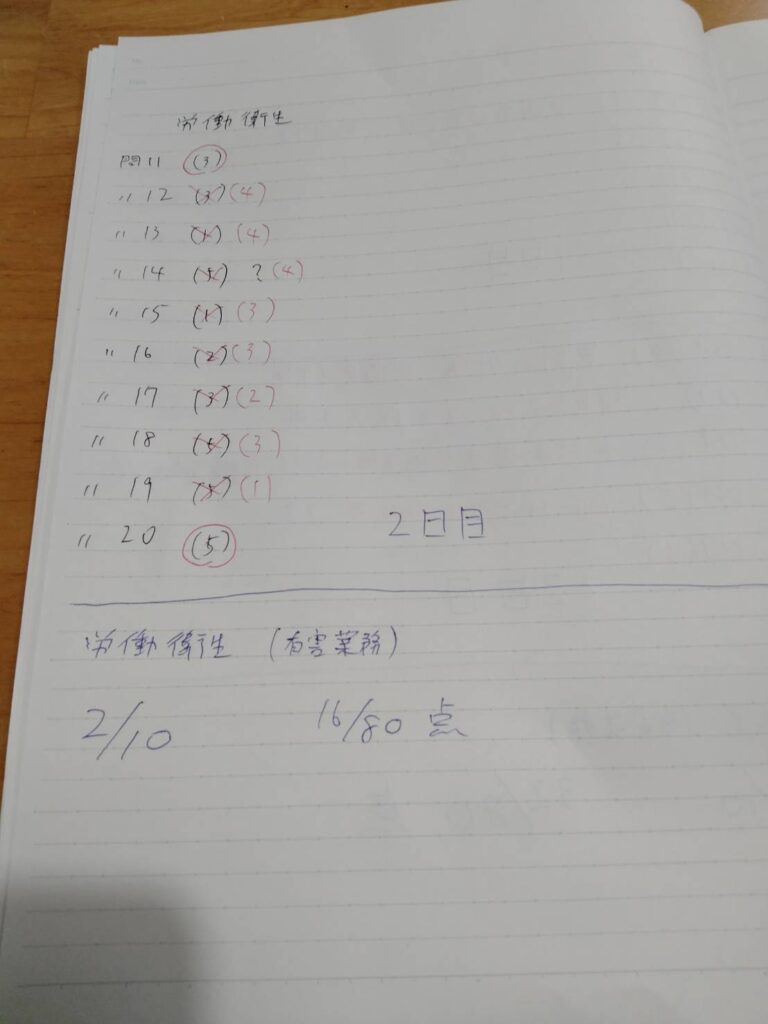 労働衛生
問11 (3)
〃 12 (3) (4)
〃 13 (1) (4)
〃 14 (5) ? (4)
〃 15 (1) (3)
〃 16 (2) (3)
〃 17 (3) (2)
〃 18 (5) (3)
〃 19 (5) (1)
〃 20 (5)
2日目
労働衛生 (有害業務)
2/10 16/80 点